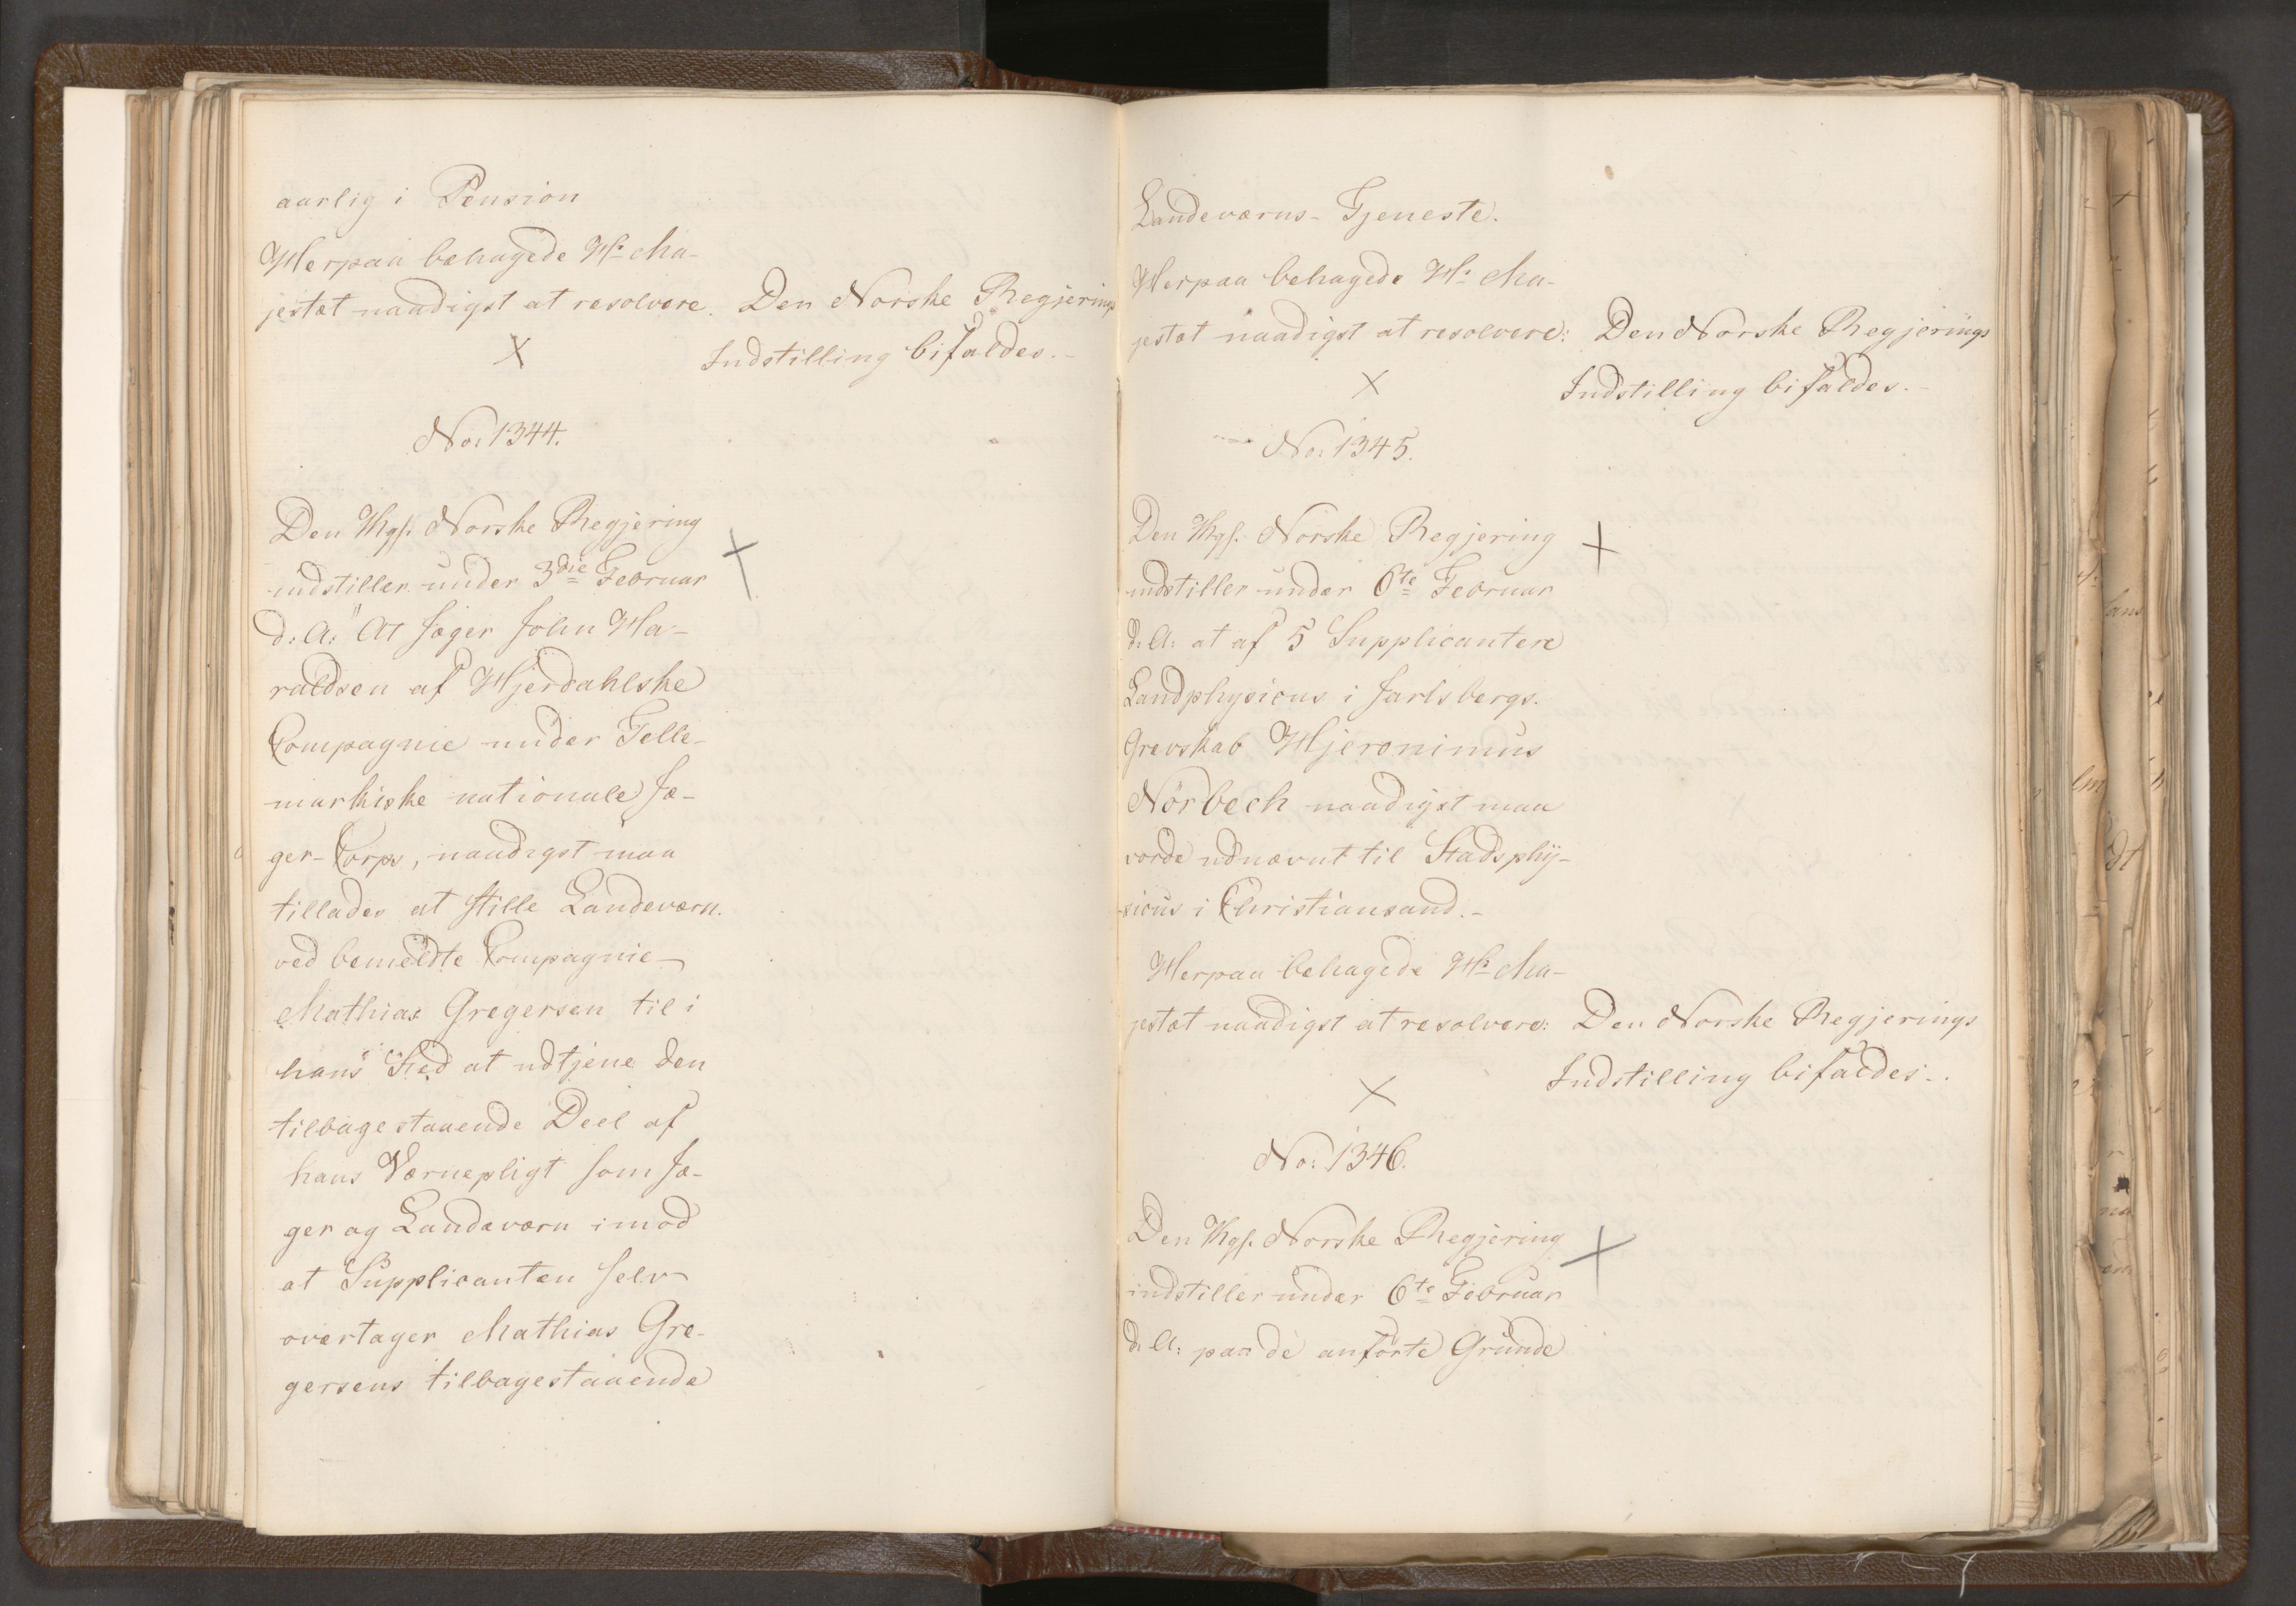 aarlig i Pension
Herpaa behagede Hs Ma-
jestæt naadigst at resolvere. Den Norske Regjerings
Indstilling bifaldes.-
No: 1344.
Den Kgl. Norske Regjering
indstiller under 3die Februar
d: A: "At Jæger John Ha-
raldsen af Hjerdahlske
Compagnie under Telle-
markiske nationale Jæ-
ger-Corps, naadigst maa
tillades at stille Landeværn.
ved bemeldte Compagnie
Mathias Gregersen til i
hans Sted at udtjene den
tilbagestaaende Deel af
hans Værnepligt som Jæ-
ger og Landeværn imod
at Supplicanten selv
overtager Mathias Gre-
gersens tilbagestaaende
Landeværns-Tjeneste.
Herpaa behagede Hs Ma-
jestæt naadigst at resolvere: Den Norske Regjerings
Indstilling bifaldes.-
No: 1345.
Den Kgl. Norske Regjering
indstiller under 6te Februar
d: A: at af 5 Supplicantere
Landphysicus i Jarlsbergs.
Grevskab Hjeronimus
Nörbech naadigst maa
vorde udnævnt til Stadsphy-
sicus i Christiansand.-
Herpaa behagede Hs Ma-
jestæt naadigst at resolvere: Den Norske Regjerings
Indstilling bifaldes..
No: 1346.
Den Kgl. Norske Regjering
indstiller under 6te Februar
d: A: paa de anförte Grunde